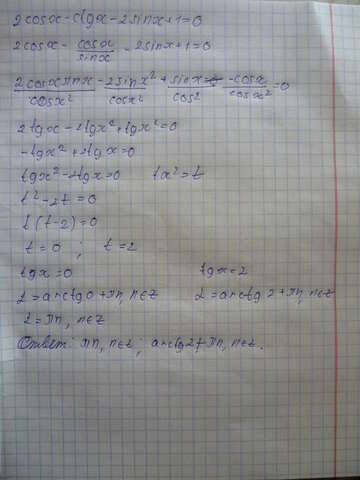 2cosx - ctgx - 2sinx + 1 = 0
2cosx - cosx/sinx - 2sinx + 1 = 0
2cosxsinx/cosx² - 2sinx²/cosx² + sinx/cos² - cosx/cosx² = 0
2tgx - 2tgx² + tgx² = 0
-tgx² + 2tgx = 0
tgx² - 2tgx = 0 tx² = t
t² - 2t = 0
t(t-2) = 0
t = 0 ; t = 2
tgx = 0 tgx = 2
L = arctg0 + πn, n∈z L = arctg2 + πn, n∈z
L = πn, n∈z
Ответ: πn, n∈z; arctg2 + πn, n∈z.